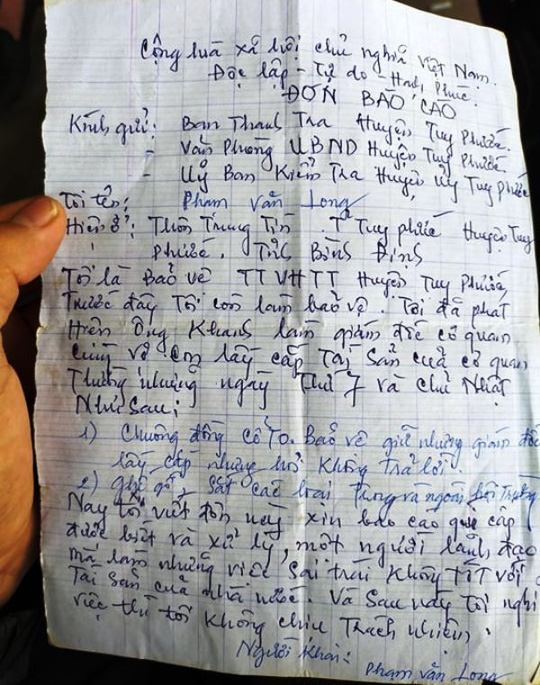 Cộng hoà xã hội chủ nghĩa Việt Nam.
Độc lập - Tự do - Hạnh Phúc.
ĐƠN BÁO CÁO
Kính gửi: Ban Thanh Tra Huyện Tuy Phước.
- Văn Phòng UBND Huyện Tuy Phước.
- Uỷ Ban Kiểm Tra Huyện uỷ Tuy Phước
Tôi tên: Phạm Văn Long
Hiện ở: Thôn Trung Tín. TT Tuy phước Huyện Tuy
Phước. Tỉnh Bình Định
Tôi là Bảo vệ TTVHTT Huyện Tuy Phước,
Trước đây Tôi còn làm bảo vệ. Tôi đã phát
Hiện Ông Khanh làm giám đốc cơ quan
cùng vợ con lấy cắp Tài Sản của cơ quan
Thường những ngày Thứ 7 và chủ Nhật
Như Sau:
1) Chuông đồng cổ To. Bảo vệ giữ nhưng giám đốc
lấy cắp nhưng hỏi không trả lời.
2) Ghế gỗ, Sắt các loại Trong và ngoài hội Trường
Nay tôi viết đơn này xin báo cáo quý cấp
được biết và xử lý, một người lãnh đạo
mà làm những việc Sai trái không tốt với
Tài sản của nhà nước. Và Sau này Tôi nghỉ
việc thì tôi không chịu Trách nhiệm.
Người khai:
Phạm Văn Long